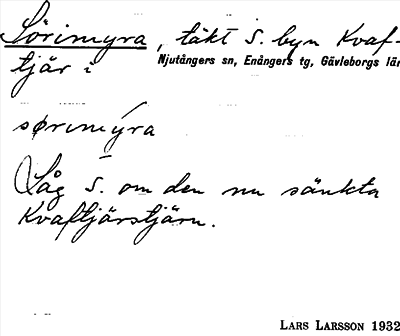 Sörimyra, täkt S. byn Kvaf-
tjär i Njutångers sn, Enångers tg, Gävleborgs län
sørimýra
Låg S. om den nu sänkta
Kvaftjärstjärn.
LARS LARSSON 1932